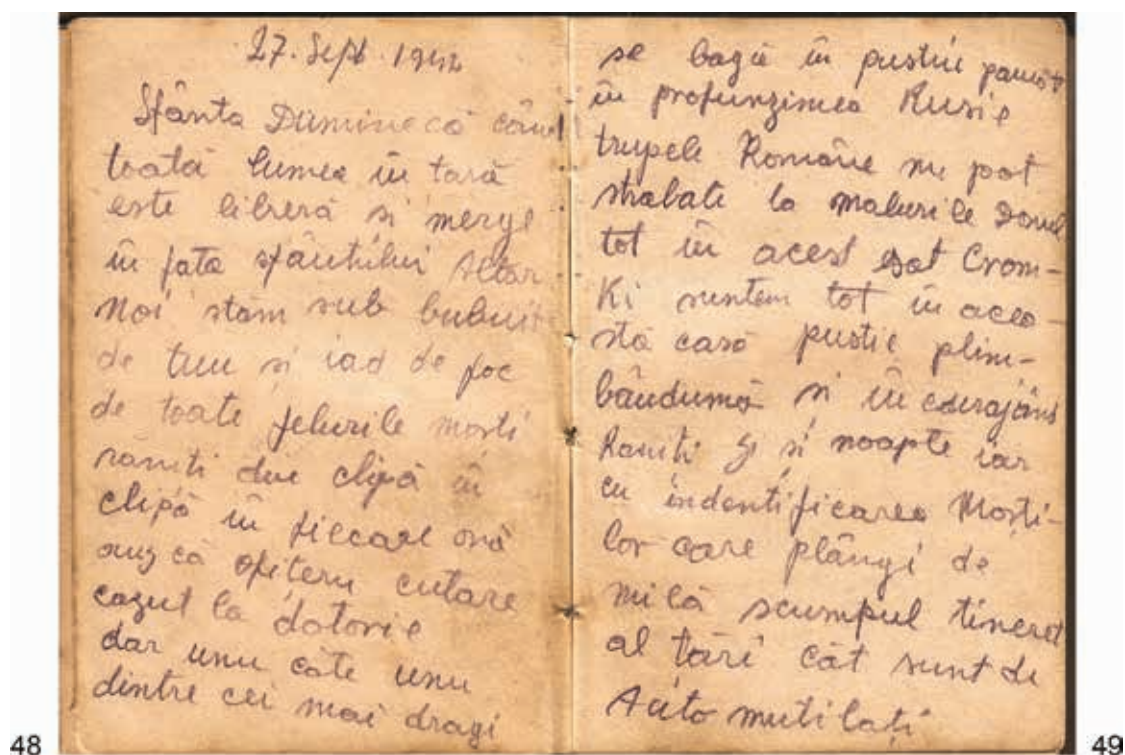 27. Sept. 1942
Sfânta Duminecă când
toată lumea în tară
este liberă si merge
în fata sfântului Altar
Noi stăm sub bubuit
de tun si iad de foc
de toate felurile morti
răniti din clipă în
clipă în fiecare oră
auz că ofiteru cutare
cazut la datorie
dar unu câte unu
dintre cei mai dragi
48
se bagă în pustiu pamânt
în profunzimea Rusie
trupele Române nu pot
strabate la malurile Donul
tot în acest sat Crom-
Ki suntem tot în acea-
stă casă pustie plim-
bândumă si în curajând
Raniti zi si noapte iar
cu indentificarea Morti-
lor care plângi de
milă scumpul tineret
al tări cât sunt de
Auto mutilați
49